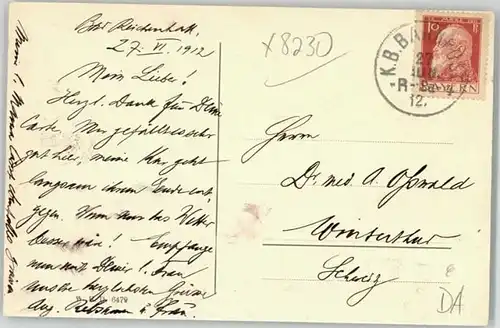 Bad Reichenhall
27. VI. 1912
Mein Liebe!
Herzl. Dank für Deine
Karte. Mir gefällt es sehr
gut hier, meine Kur geht
langsam ihrem Ende ent-
gegen. Wenn nur das Wetter
besser wär! Empfange
nun mit Deiner l. Frau
unsre herzlichsten Grüsse
Aug. u. Frau.
6479
x8230
K.B.BA
27
12.
10
BAYERN
Herrn
Dr. med. A. Osswald
Winterthur
Schweiz
DA